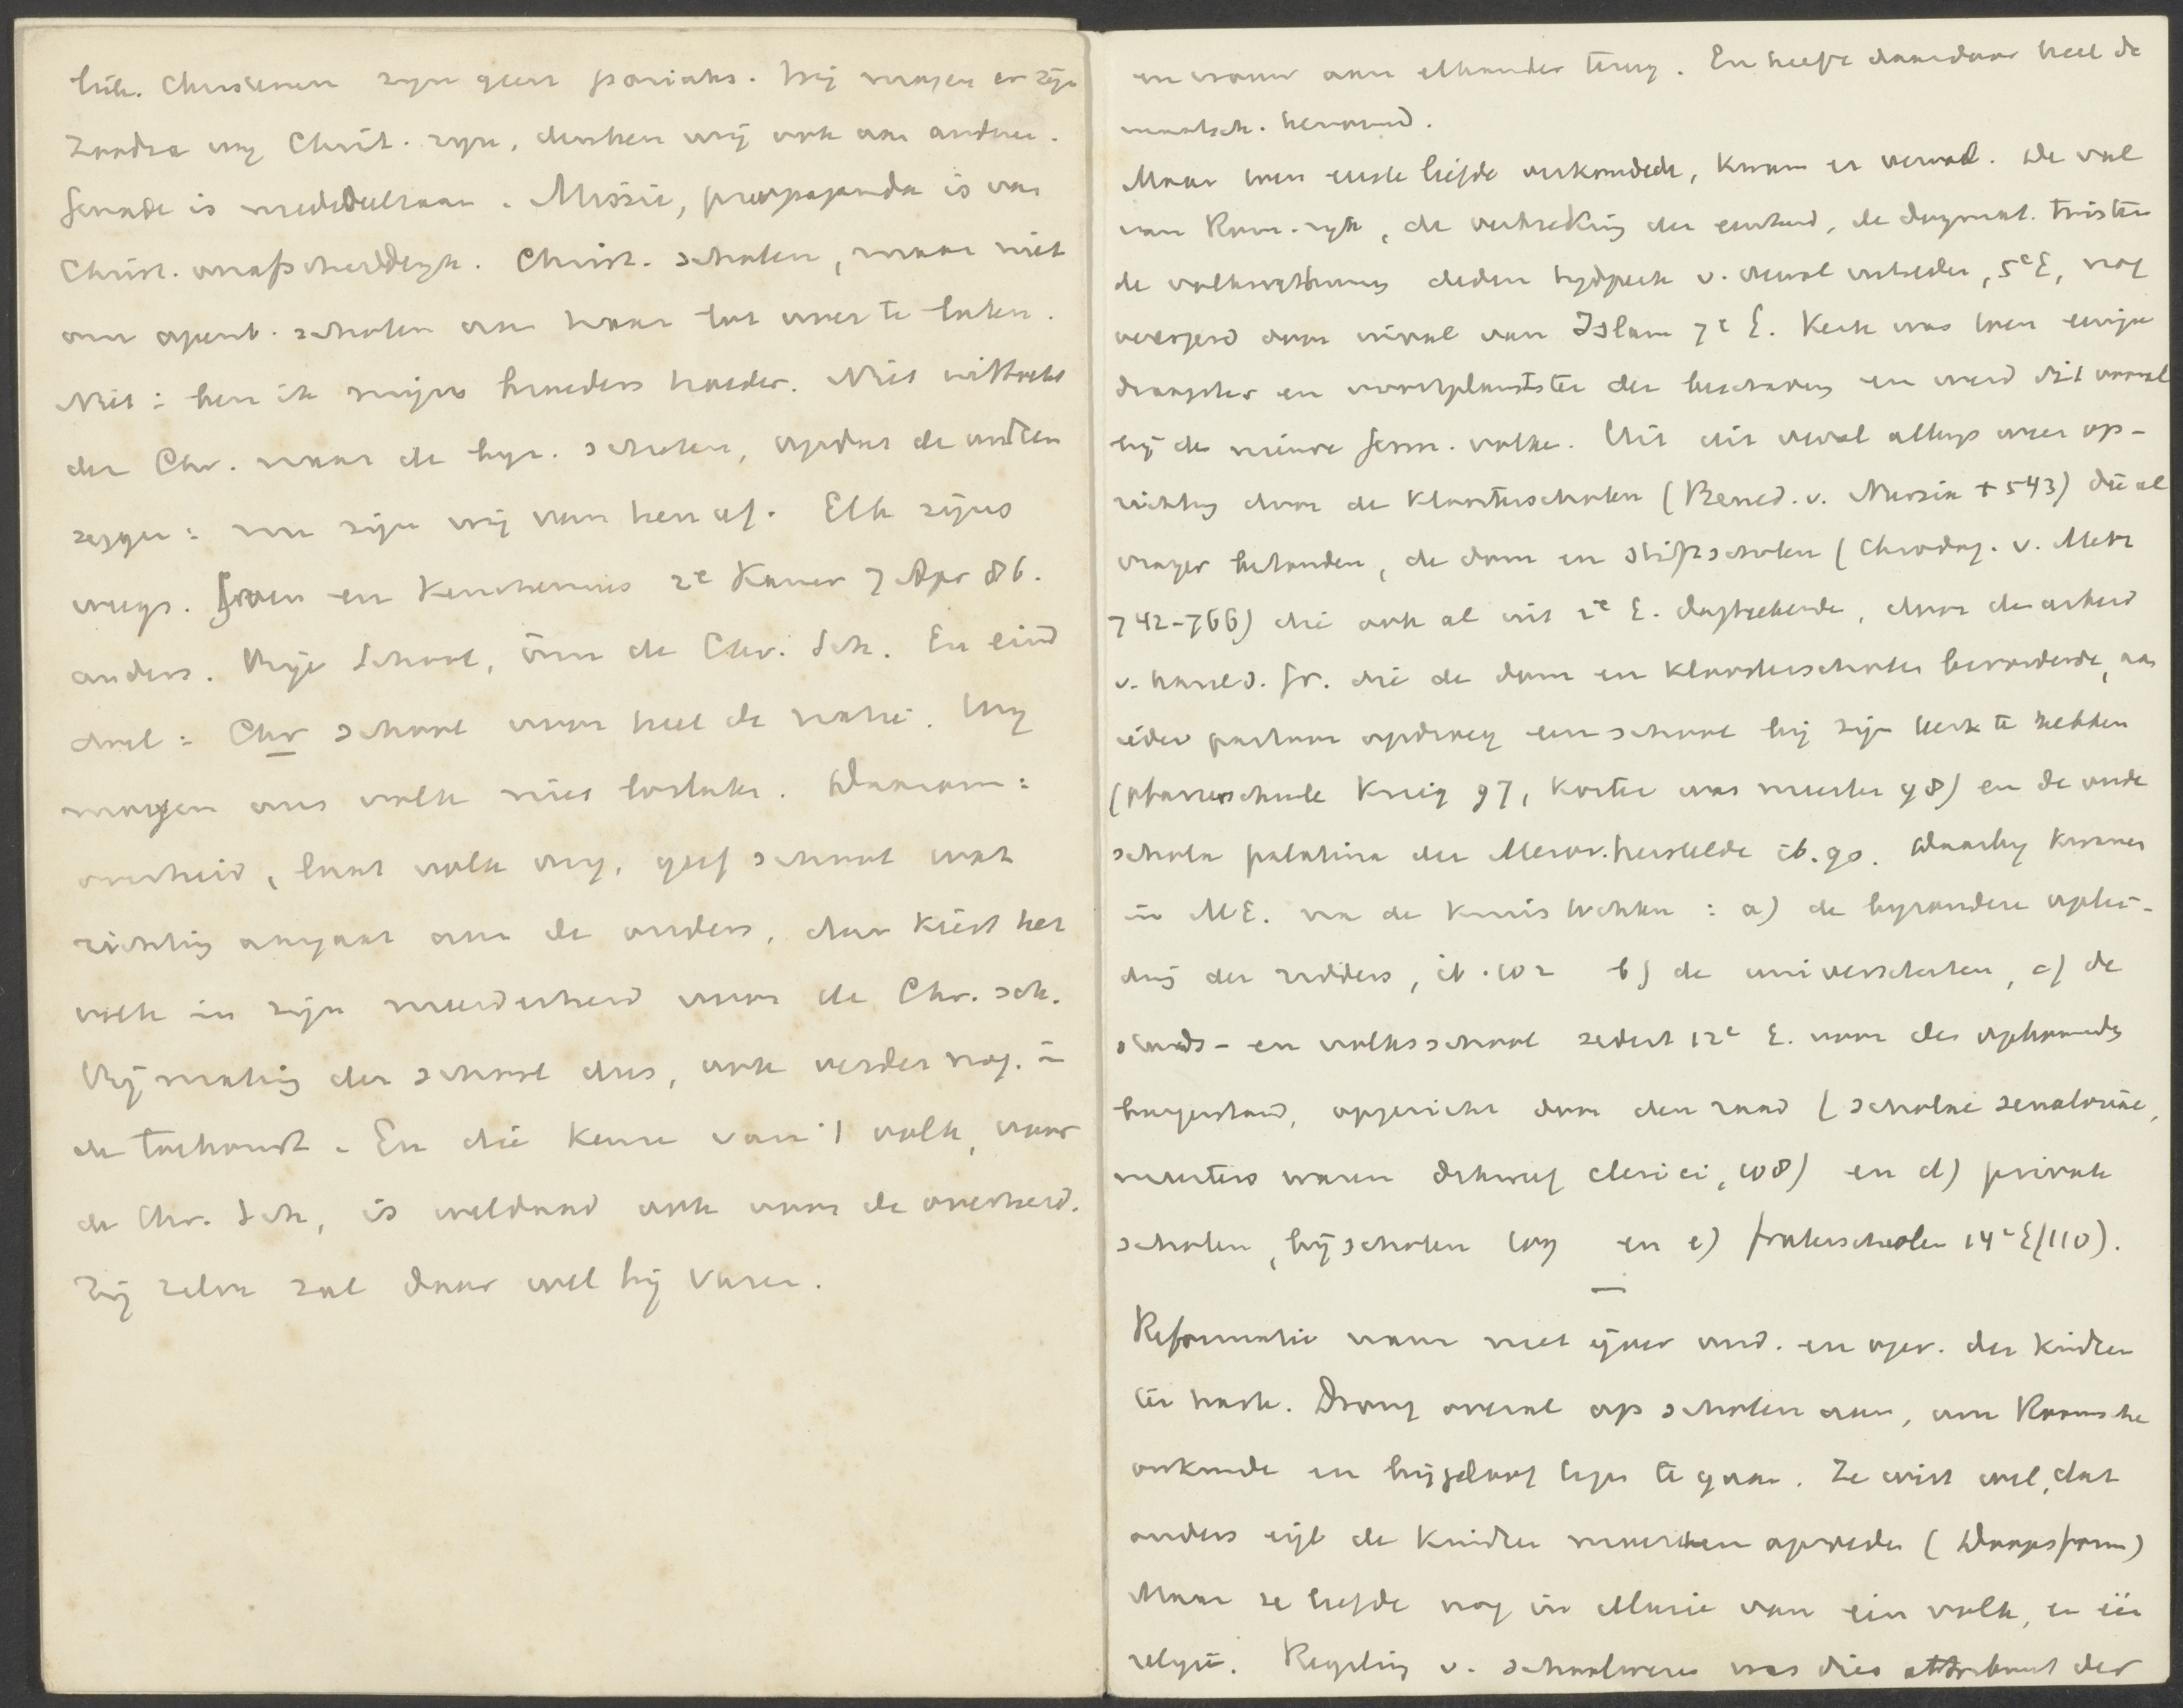 Christenen zijn geen pariahs. Wij mogen er zijn
Zoodra wij Christ. zijn, denken wij ook aan andren.
Genade is mededeelzaam. Missie, propaganda is van
Christ. onafscheidelijk. Christ. scholen, maar niet
om openb. scholen aan haar lot over te laten.
Niet: ben ik mijns broeders hoeder. Niet uittocht
der Chr. naar de byz. scholen, opdat de andren
zeggen: nu zijn wij van hen af. Elk zijns
weegs. Groen en Keuchenius 2e Kamer 7 Apr 86.
anders. Vrije School, om de Chr. Sch. En eind
doel: Chr school voor heel de natie. Wij
mogen ons volk niet loslaten. Daarom:
overheid, laat volk vrij, geef school wat
richting aangaat aan de ouders, dan kiest het
volk in zijn meerderheid voor de Chr. sch.
Vrijmaking der school dus, ook verder nog. in
de toekomst. En die keuze van 't volk, voor
de Chr. Sch, is weldaad ook voor de overheid.
Zij zelve zal daar wel bij varen.
en vrouw aan elkander terug. En heeft daardoor heel de
maatsch. hervormd.
Maar toen eerste liefde verkoudde, kwam er verval. De val
van Rom. rijk, de verbreking der eenheid, de dogmat. twisten
de volksverhuizing deden tijdperk v. verval intreden, 5e E, nog
verergerd door inval van Islam 7e E. Kerk was toen eenige
draagster en voortplantster der beschaving en werd dit vooral
bij de nieuwe Germ. volken. Uit dit verval allengs weer op-
richting door de kloosterscholen (Bened. v. Nursia + 543) die al
vroeger bestonden, de dom en stiftscholen (Chrodeg. v. Metz
742-766) die ook al uit 2e E. dagteekende, door den arbeid
v. Karel d. Gr. die de dom en kloosterscholen bevorderde, aan
ieder pastoor opdroeg een school bij zijn kerk te hebben
(pfarrerschule Krieg 97, koster was meester 98) en de oude
schola palatina der Merov. herstelde ib. 90. Daarbij kwamen
in ME. na de Kruistochten: a) de byzondere oplei-
ding der ridders, ib. 102 b) de universiteiten, c) de
stads- en volksschool sedert 12e E. voor den opkomenden
burgerstand, opgericht door den raad (scholae senatoriae,
meesters waren dikwijf clerici, 108) en d) private
scholen, bijscholen 109 en e) fraterscholen 14e E (110).
Reformatie nam met ijver ond. en opv. der kindren
ter hand. Drong overal op scholen aan, om Roomsche
onkunde en bijgeloof tegen te gaan. Ze wist wel, dat
ouders eigl de kindren moesten opvoeden (Doopsform)
Maar ze leefde nog in illusie van één volk, en één
religie. Regeling v. schoolwezen was dies attribuut der